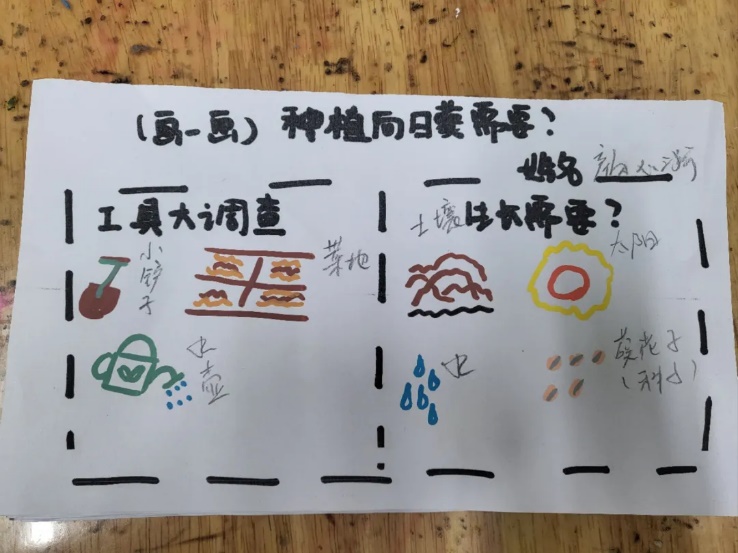 (画一画) 种植向日葵需要?
姓名
工具大调查
小铲子
菜地
水壶
生长需要?
土壤
太阳
水
葵花子
(种子)